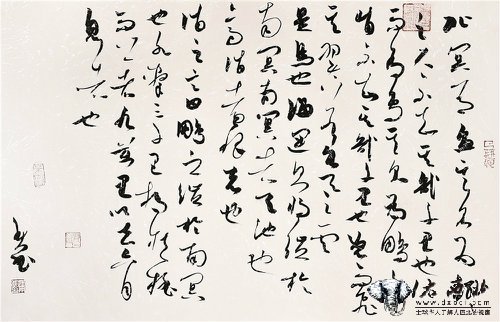 北冥有魚其名為
之大不知其幾千里也化
而為鳥其名為鵬鵬之
背不知其幾千里也怒而飛
其翼若垂天之雲
是鳥也海運則將徙於
南冥南冥者天池也
齊諧者志怪者也
諧之言曰鵬之徙於南冥
也水擊三千里摶扶搖
而上者九萬里去以六月
息者也